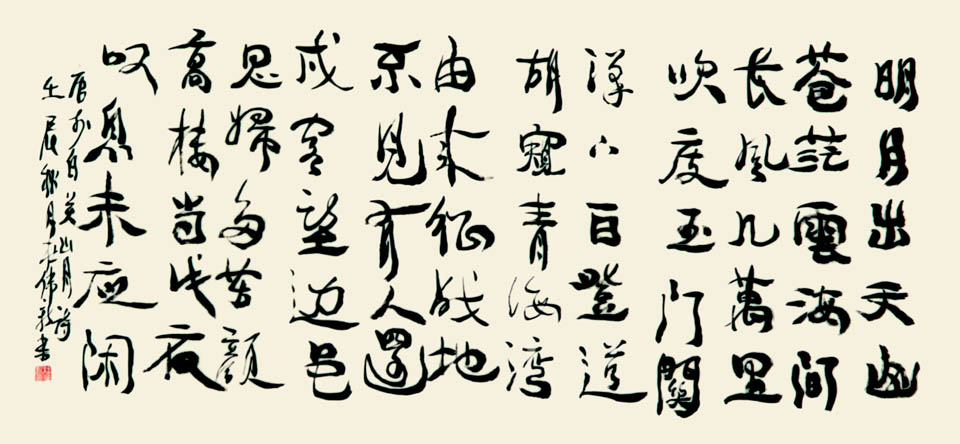 明月出天山
苍茫雲海间
长风几萬里
吹度玉门關
漢下白登道
胡窺青海湾
由来征战地
不見有人還
戍客望边邑
思婦多苦颜
高楼当此夜
叹息未应闲
唐李白关山月诗
壬辰秋月王伟书